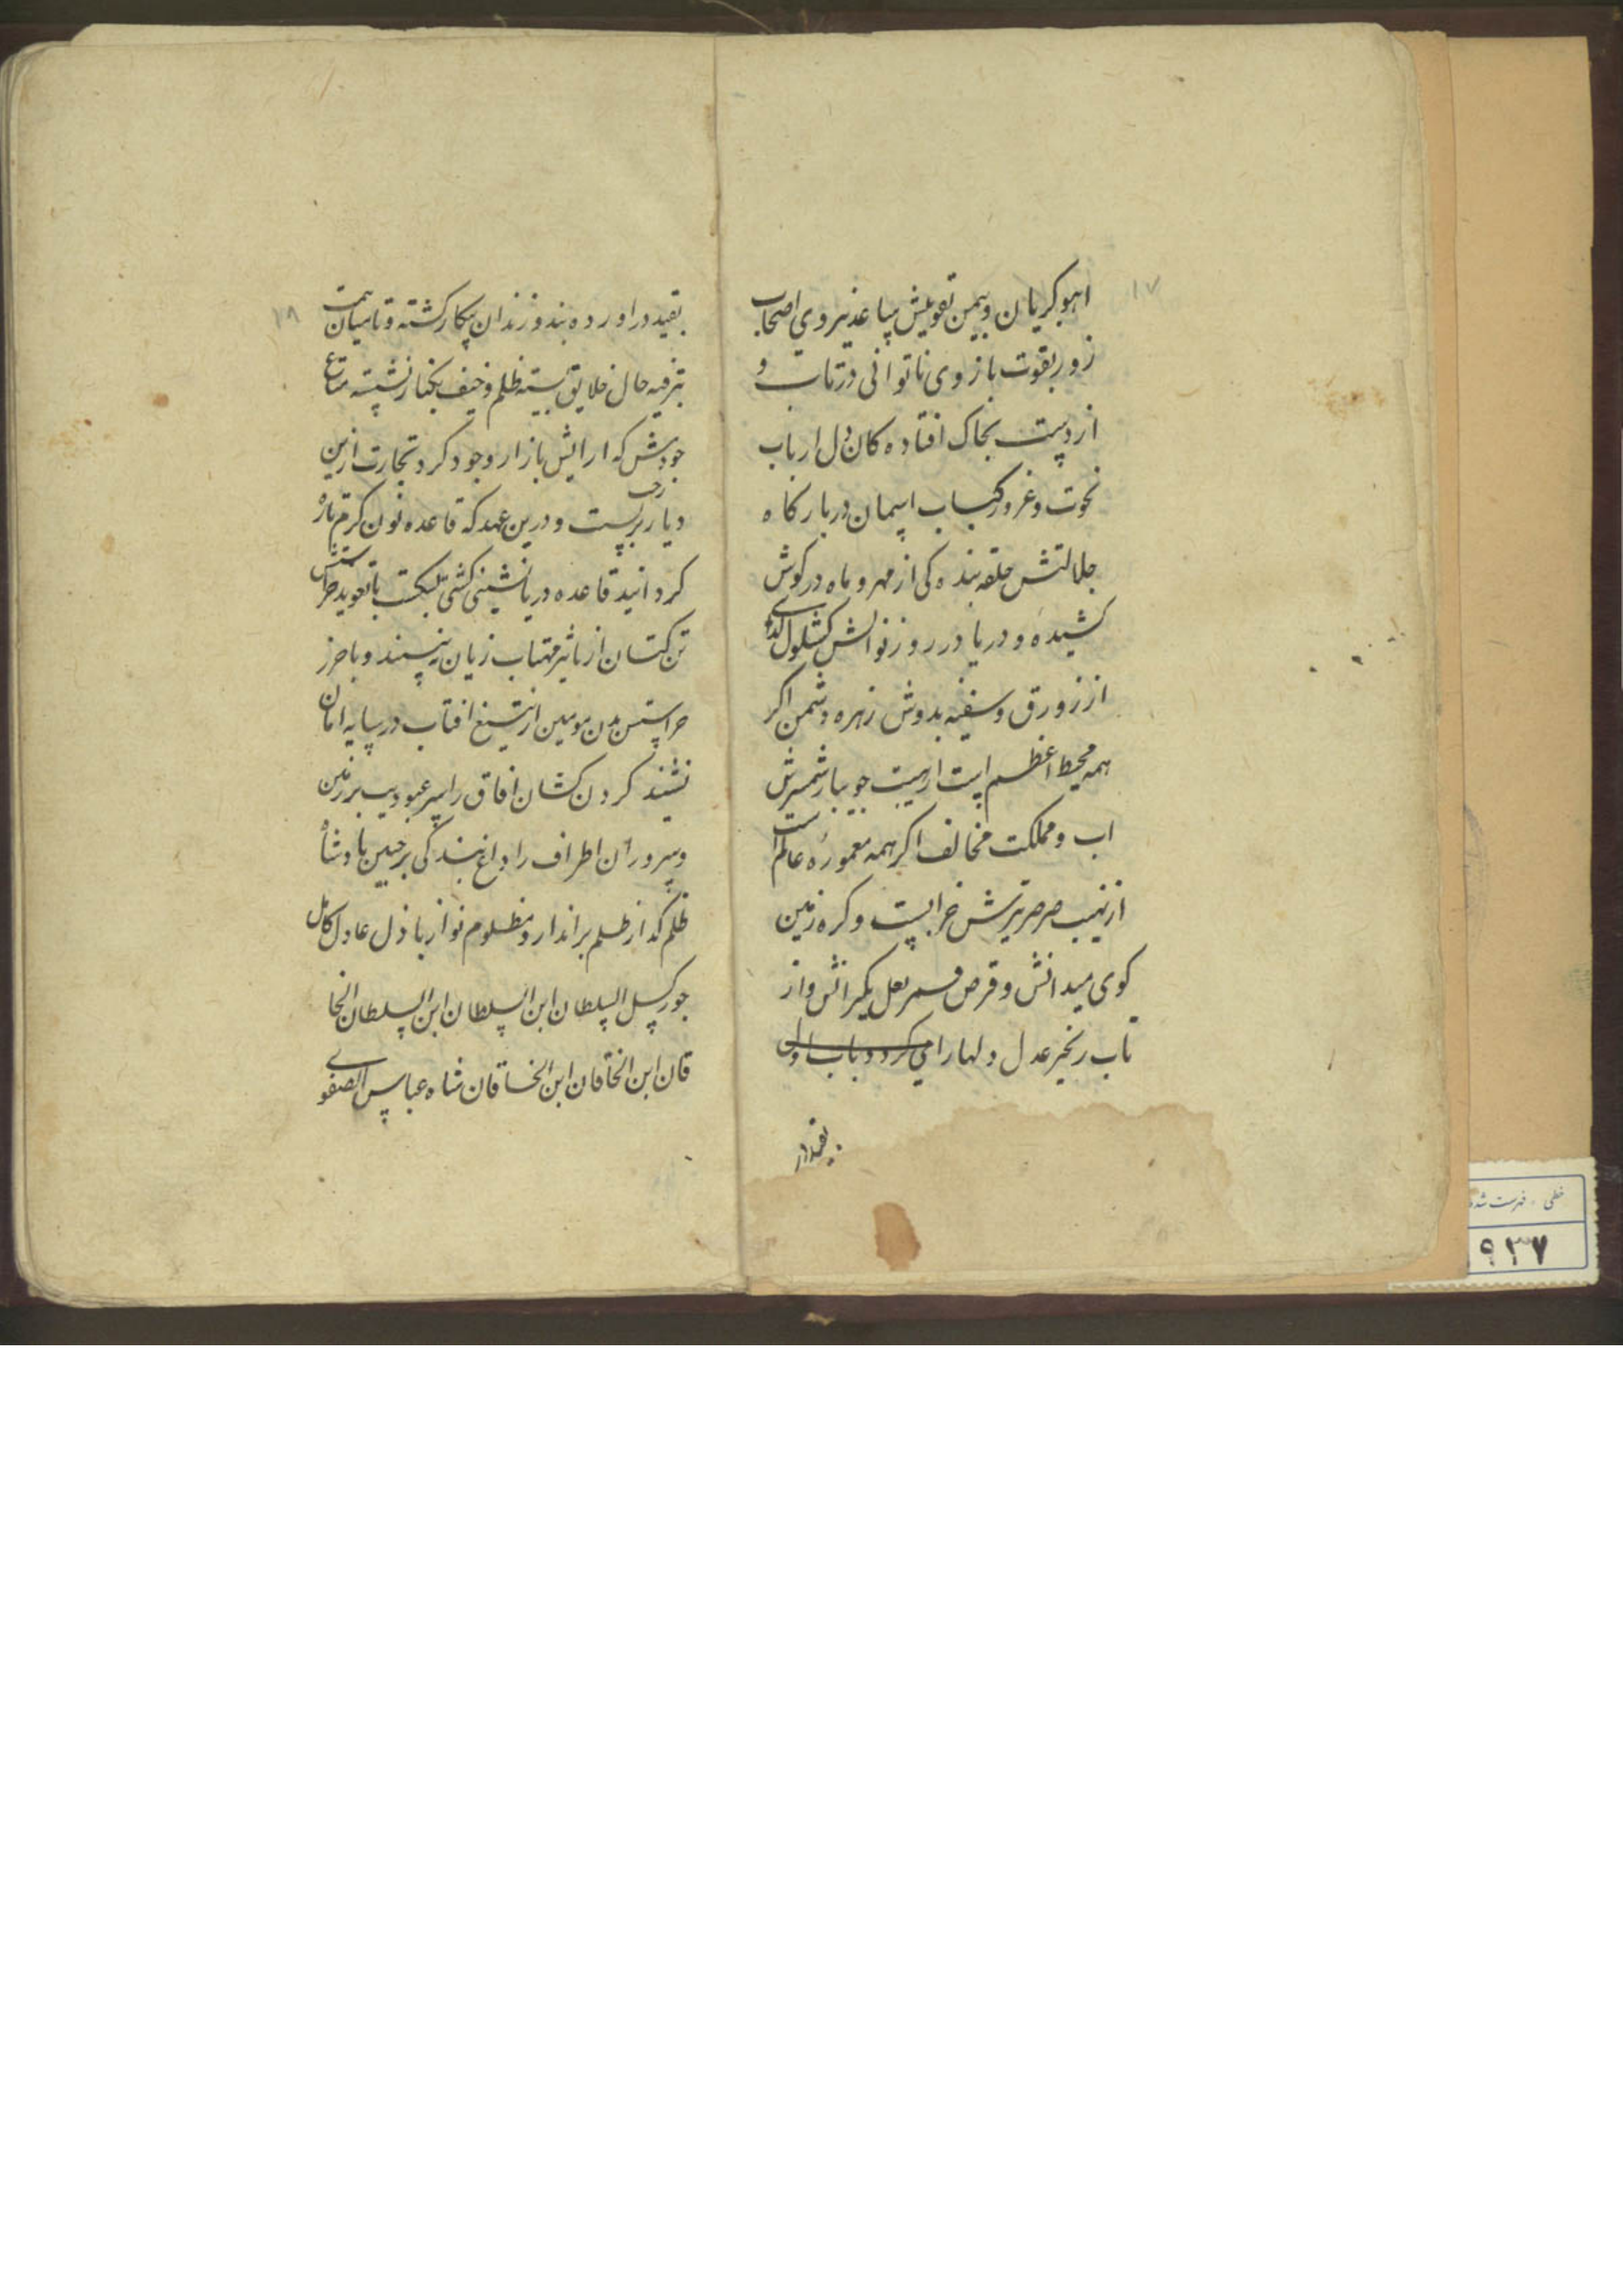 ۱۷
اهو کریان و بیمن تقویتش ساعد نیروی اصحاب
زور بقوت بازوی ناتوانی در تاب و
از دست بخاک افتاده کان دل ارباب
نخوت و غرور کباب اسمان در بارکاه
جلالتش حلقه بنده کی از مهر و ماه در کوش
کشیده و دریا در روز نوالش کشکول کدای
از زورق و سفینه بدوش زهره دشمن اکر
همه محیط اعظم است از هیبت جویبار شمشیرش
اب و مملکت مخالف اکر همه معموره عالم است
از نهیب صرصر تیرش خرابست و کره زمین
کوی میدانش و قرص قمر نعل یکرانش و از
تاب زنجیر عدل دلها را می
بقید در
۱۸
بقید در اورده بند و زندان بیکار کشته و تا میان همت
بترفیه حال خلایق بسته ظلم و حیف بکنار نشسته متاع
جودش که ارایش بازار وجود کرد تجارت ازین
دیار رخت بربست و درین عهد که قاعده نون کرم تازه
کردانید قاعده دریا نشینی کشتی بشکست با تعویذ حراستش
تن کتان از تاثیر مهتاب زیان نپسند و با حرز
حراستش بدن مومین از تیغ افتاب در سایه امان
نشیند کردن کشان افاق را سر عبودیت بر زمین
و سروران اطراف را داغ بندکی بر جبین پادشاه
ظلم کداز ظلم برانداز مظلوم نواز باذل عادل کامل
جور کسل السلطان ابن السلطان ابن السلطان الخا
قان ابن الخاقان ابن الخاقان شاه عباس الصفوی
خطی - فهرست شده
۹۳۷